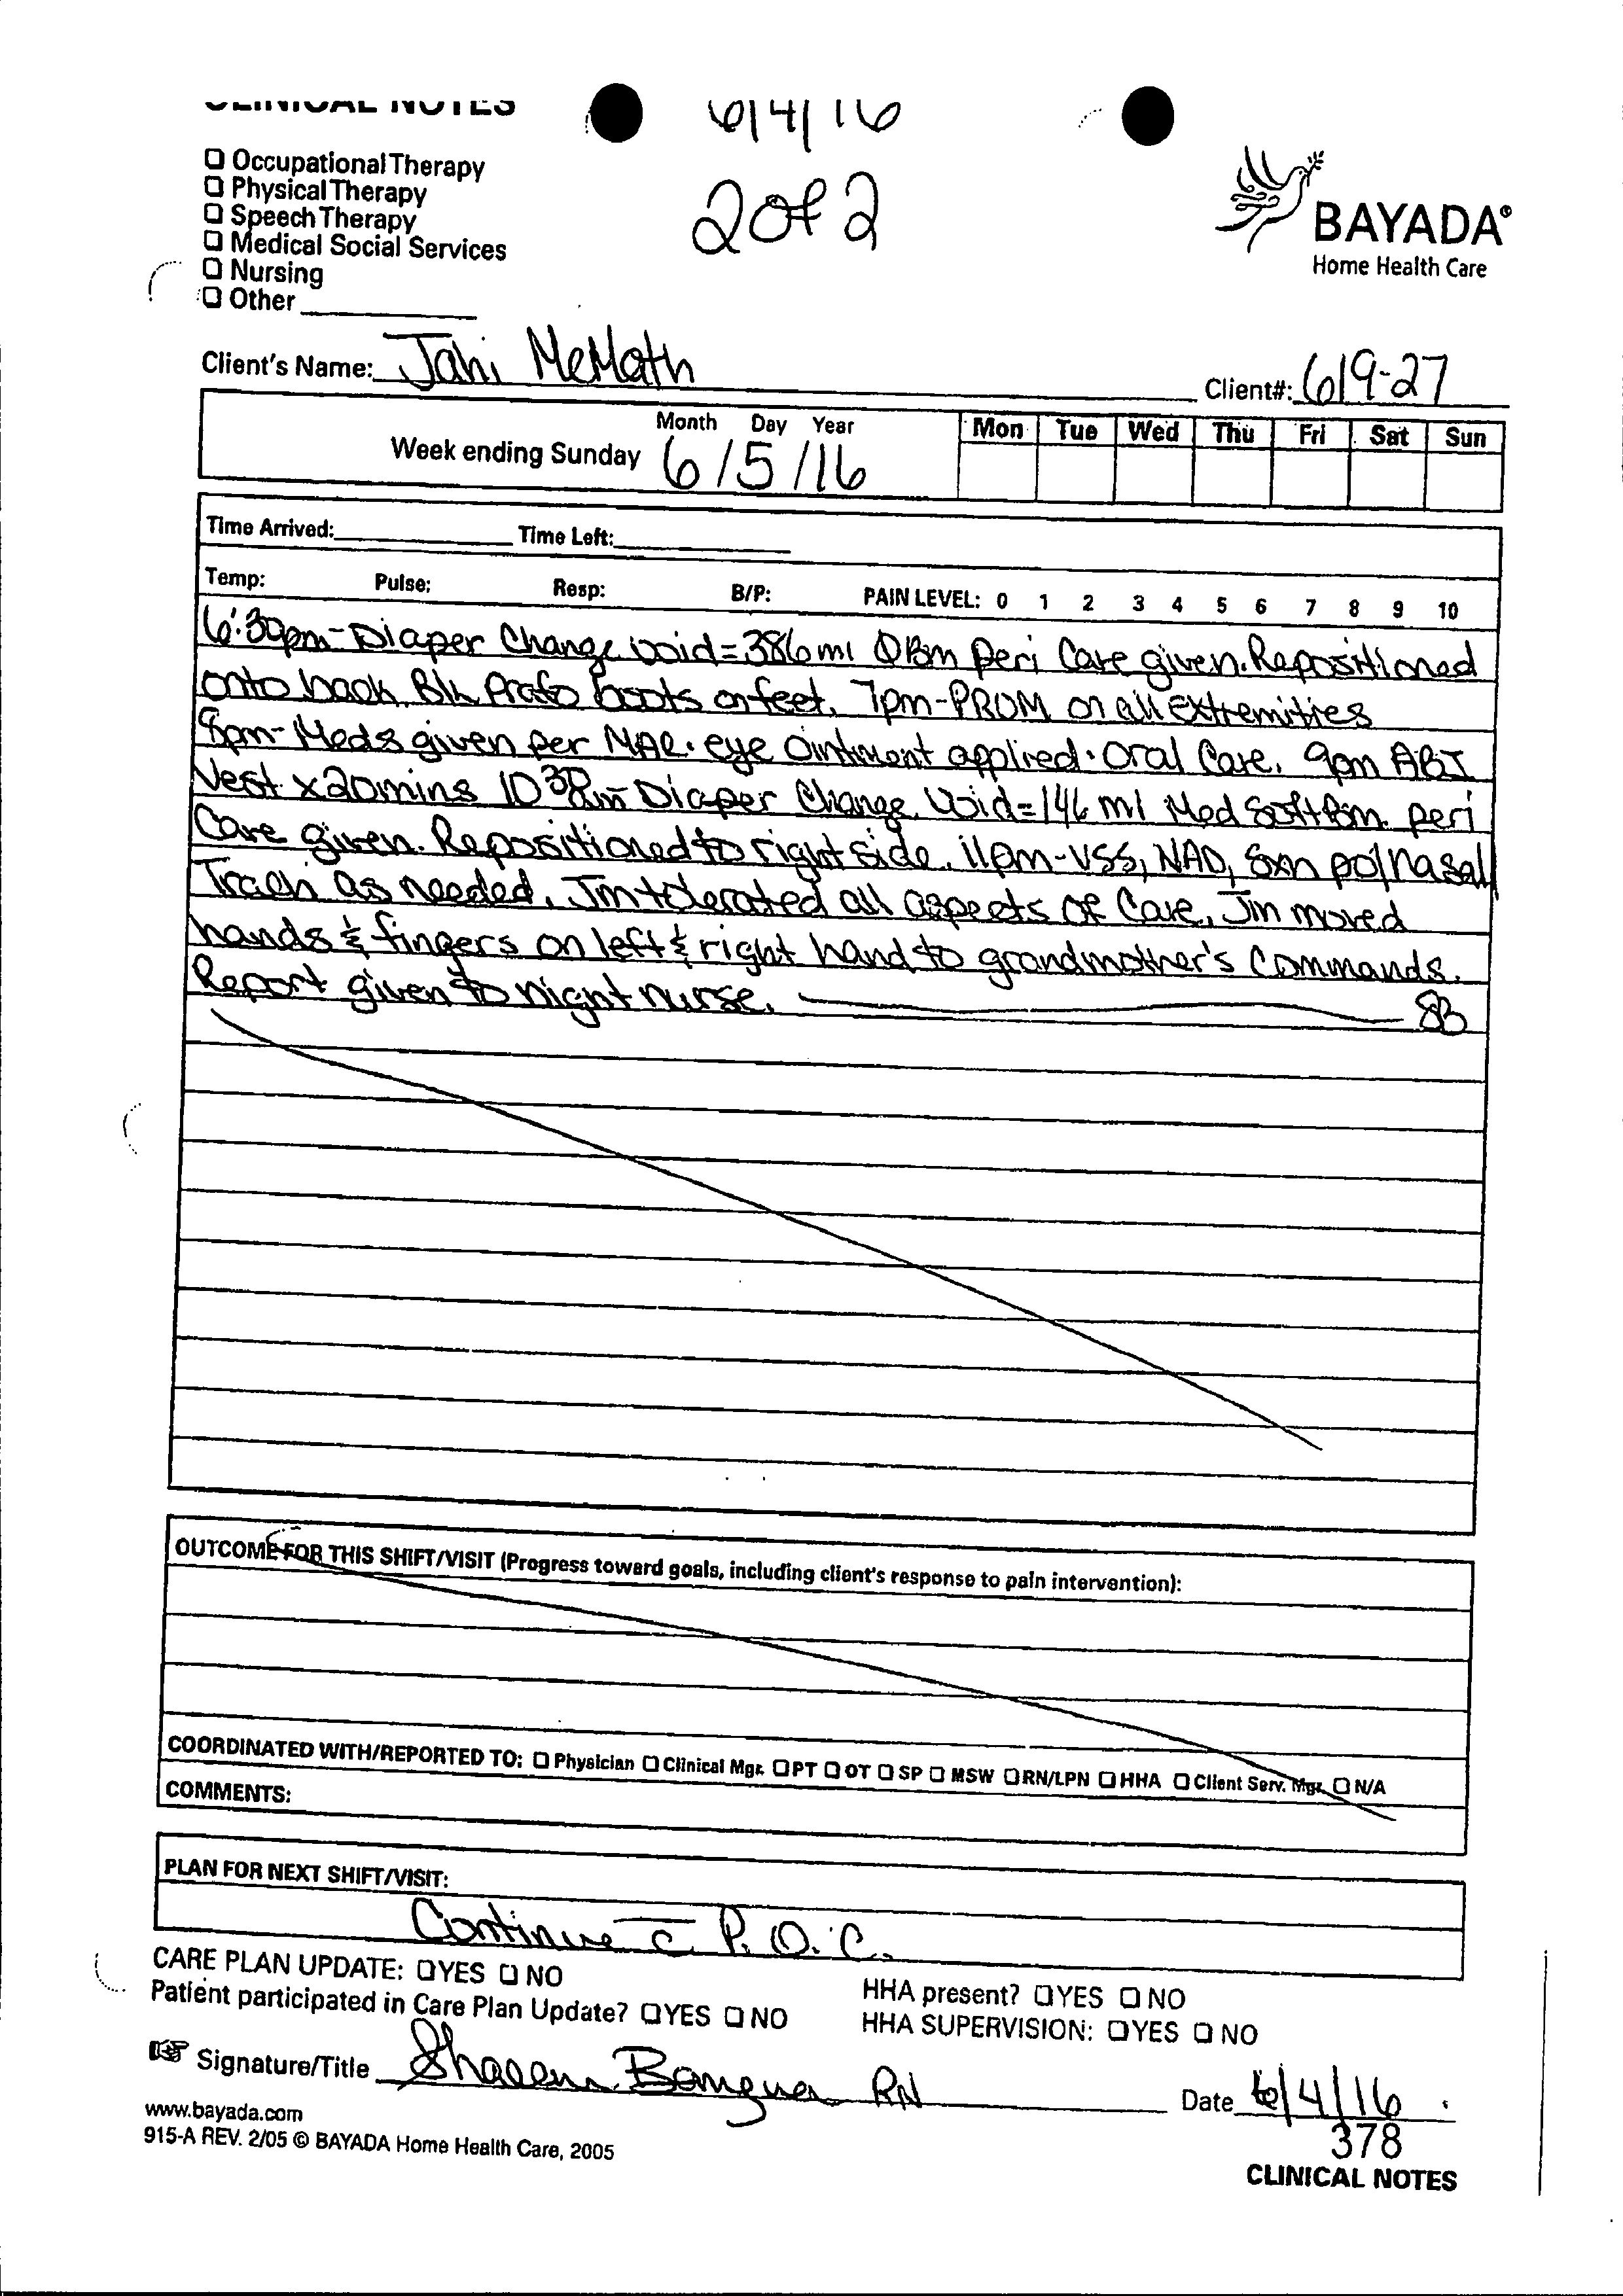 CLINICAL NOTES
6/4/16
2 of 2
☐ Occupational Therapy
☐ Physical Therapy
☐ Speech Therapy
☐ Medical Social Services
☐ Nursing
☐ Other
BAYADA®
Home Health Care
Client's Name: Jahi McMath
Client#: 619-27
Month Day Year
Week ending Sunday 6/5/16
Mon Tue Wed Thu Fri Sat Sun
Time Arrived: Time Left:
Temp: Pulse: Resp: B/P: PAIN LEVEL: 0 1 2 3 4 5 6 7 8 9 10
6:30pm-Diaper Change void=386ml ØBm peri care given. Repositioned
onto back. Blk Prafo boots on feet. 7pm-PROM on all extremities
8pm-Meds given per MAR. eye ointment applied. Oral Care. 9pm ABI
Vest x20mins 10³⁰pm-Diaper Change. Void=146 ml Med soft Bm. peri
Care given. Repositioned to right side. 11pm-VSS, NAD, Sxn po/nasal/
Trach as needed. Jm tolerated all aspects of Care. Jm moved
hands & fingers on left & right hand to grandmother's Commands.
Report given to night nurse. SB
OUTCOME FOR THIS SHIFT/VISIT (Progress toward goals, including client's response to pain intervention):
COORDINATED WITH/REPORTED TO: ☐ Physician ☐ Clinical Mgr. ☐ PT ☐ OT ☐ SP ☐ MSW ☐ RN/LPN ☐ HHA ☐ Client Serv. Mgr. ☐ N/A
COMMENTS:
PLAN FOR NEXT SHIFT/VISIT:
Continue c̄ P.O.C.
CARE PLAN UPDATE: ☐ YES ☐ NO
HHA present? ☐ YES ☐ NO
Patient participated in Care Plan Update? ☐ YES ☐ NO
HHA SUPERVISION: ☐ YES ☐ NO
Signature/Title RN
Date 6/4/16
www.bayada.com
915-A REV. 2/05 © BAYADA Home Health Care, 2005
378
CLINICAL NOTES